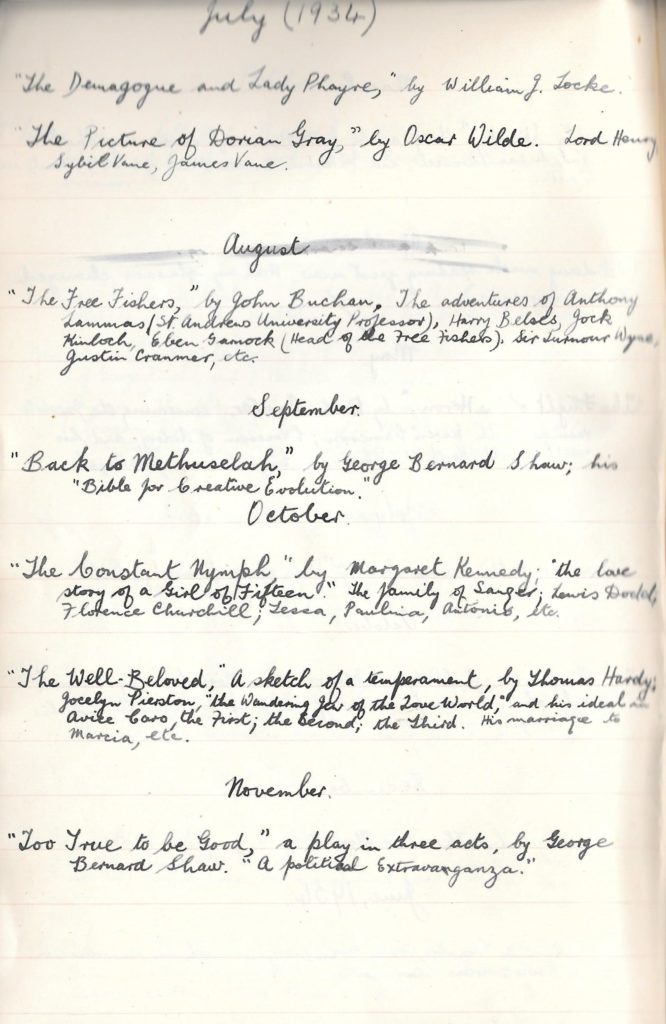 July (1934)
"The Demagogue and Lady Phayre," by William J. Locke.
"The Picture of Dorian Gray," by Oscar Wilde. Lord Henry
Sybil Vane, James Vane.
August
"The Free Fishers," by John Buchan. The adventures of Anthony
Lammas (St. Andrews University Professor), Harry Belses, Jock
Kinloch, Eben Garnock (Head of the Free Fishers). Sir Turnour Wyse,
Justin Cranmer, etc.
September.
"Back to Methuselah," by George Bernard Shaw; his
"Bible for Creative Evolution."
October.
"The Constant Nymph," by Margaret Kennedy; "the love
story of a Girl of Fifteen." The family of Sanger; Lewis Dodd,
Florence Churchill; Tessa, Paulina, Antonia, etc.
"The Well-Beloved," A sketch of a temperament, by Thomas Hardy;
Jocelyn Pierston, "the Wandering Jew of the Love World," and his ideal in
Avice Caro, the First; the Second; the Third. His marriage to
Marcia, etc.
November.
"Too True to be Good," a play in three acts, by George
Bernard Shaw. "A political Extravaganza."